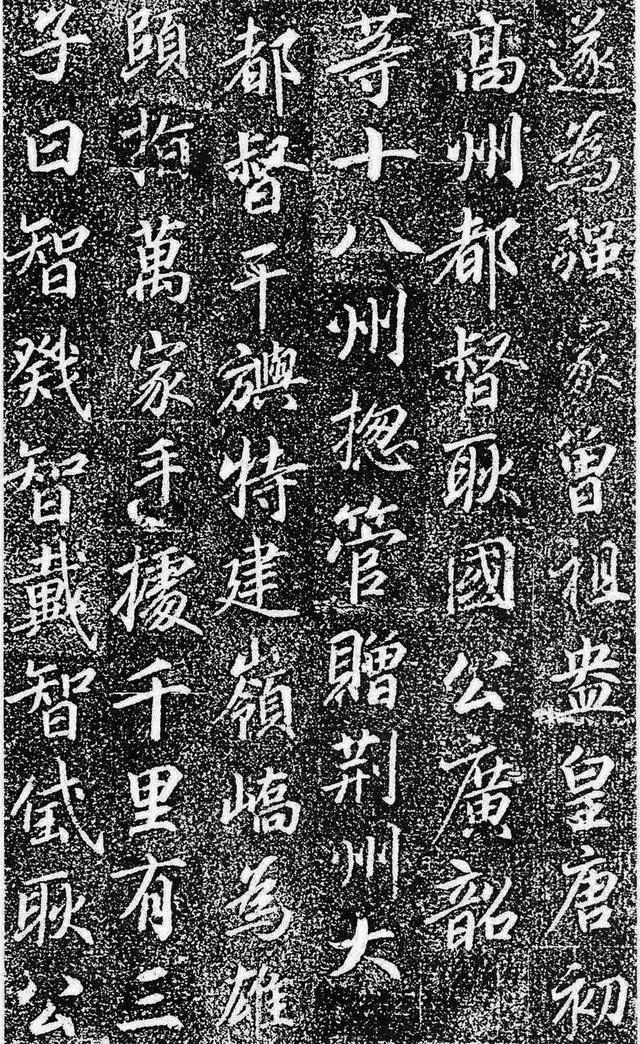 遂為强家曾祖盎皇唐初
高州都督耿國公廣韶
等十八州揔管贈荆州大
都督平旟特建嶺嶠為雄
頤指萬家手據千里有三
子曰智戣智戴智㦲耿公